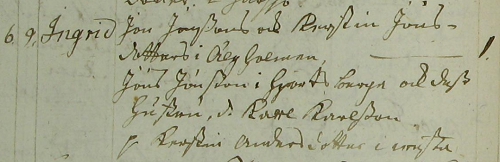 6. 9. Ingrid Jon Jonssons och Kerstin Jöns-
dotters i Älgholmen,
Jöns Jönsson i Hjortsberga och dess
Hustru, d. Karl Karlsson
p. Kerstin Andersdotter i